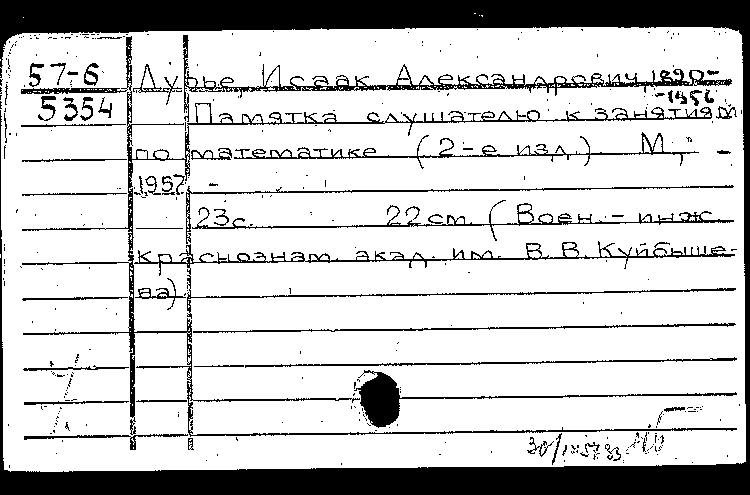 57-6 Лурье, Исаак Александрович, 1890-
5354 -1956
Памятка слушателю к занятиям
по математике (2-е изд.) М., -
1957 -
23с. 22см. (Воен.-инж.
краснознам. акад. им. В. В. Куйбыше-
ва)